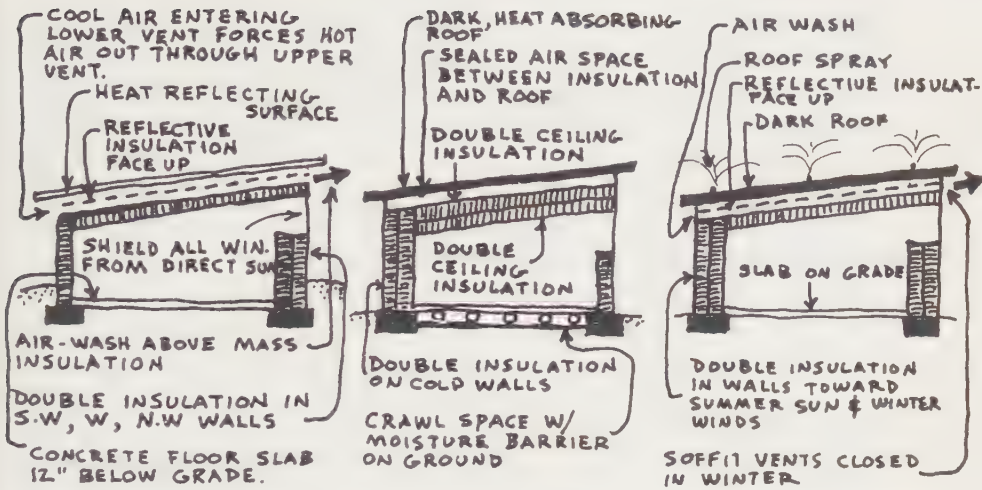 COOL AIR ENTERING
LOWER VENT FORCES HOT
AIR OUT THROUGH UPPER
VENT.
HEAT REFLECTING
SURFACE
REFLECTIVE
INSULATION
FACE UP
SHIELD ALL WIN.
FROM DIRECT SUN
AIR-WASH ABOVE MASS
INSULATION
DOUBLE INSULATION IN
S.W, W, N.W WALLS
CONCRETE FLOOR SLAB
12" BELOW GRADE.
DARK, HEAT ABSORBING
ROOF
SEALED AIR SPACE
BETWEEN INSULATION
AND ROOF
DOUBLE CEILING
INSULATION
DOUBLE
CEILING
INSULATION
DOUBLE INSULATION
ON COLD WALLS
CRAWL SPACE W/
MOISTURE BARRIER
ON GROUND
AIR WASH
ROOF SPRAY
REFLECTIVE INSULAT-
FACE UP
DARK ROOF
SLAB ON GRADE
DOUBLE INSULATION
IN WALLS TOWARD
SUMMER SUN & WINTER
WINDS
SOFFIT VENTS CLOSED
IN WINTER